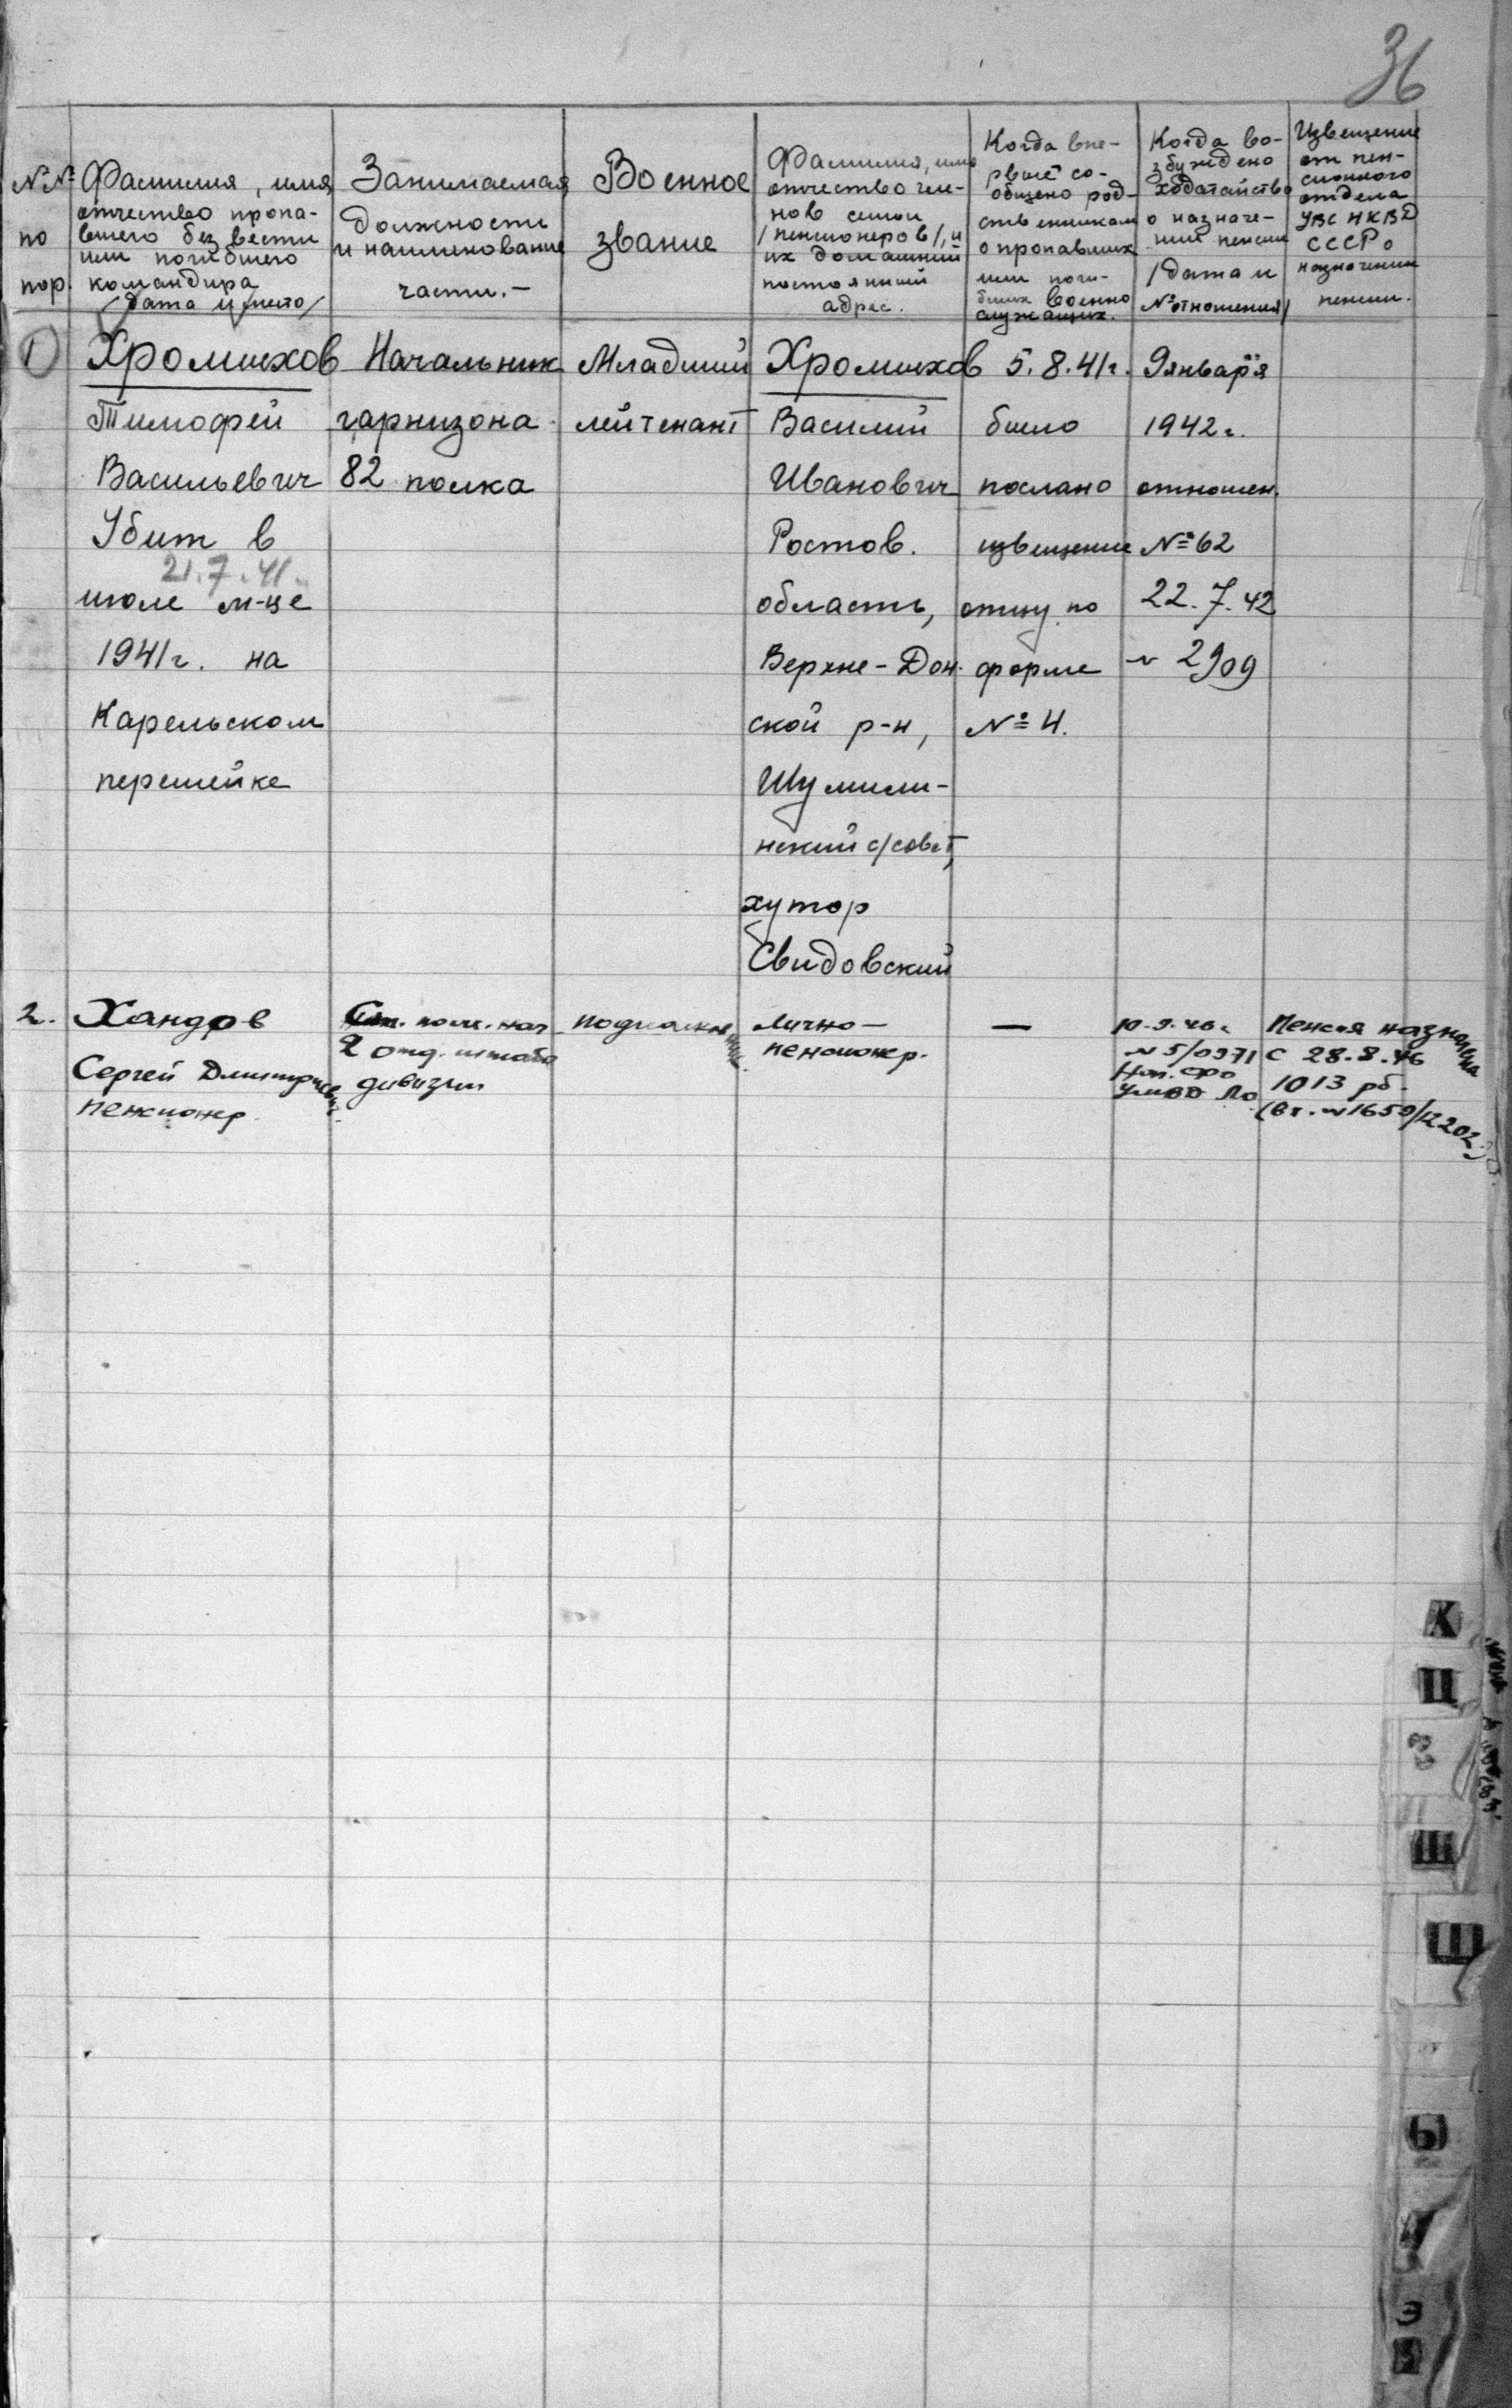 36
№№
по
пор.
Фамилия, имя
отчество пропа-
вшего без вести
или погибшего
командира
/дата и место/
Занимаемая
должность
и наименование
части.-
Военное
звание
Фамилия, имя
отчество чле-
нов семьи
/пенсионеров/, и
их домашний
постоянный
адрес.
Когда впе-
рвые со-
общено род-
ственникам
о пропавших
или поги-
бших военно
служащих.
Когда во-
збуждено
ходатайство
о назначе-
нии пенсии
/дата и
№ отношения/
Извещение
от пен-
сионного
отдела
УВС НКВД
СССР о
назначении
пенсии.
1
Хромихов
Тимофей
Васильевич
Убит в
21.7.41.
июле м-це
1941г. на
Карельском
перешейке
Начальник
гарнизона
82 полка
Младший
лейтенант
Хромихов
Василий
Иванович
Ростов.
область,
Верхне-Дон-
ской р-н,
Шумили-
нский с/совет,
хутор
Свидовский
5.8.41г.
было
послано
извещение
отцу по
форме
№ 4.
9 января
1942г.
отношен.
№ 62
22.7.42
№ 2909
2.
Хандов
Сергей Дмитриевич
пенсионер.
Ст. пом. нач
2 отд. штаба
дивизии
подполковник
лично-
пенсионер.
—
10.9.46г
№ 5/0971
УМВД ЛО
Пенсия назначена
с 28.8.46
1013 рб.
(вх. № 1659/12202)
Х
Ц
Ш
Щ
Ы
Э